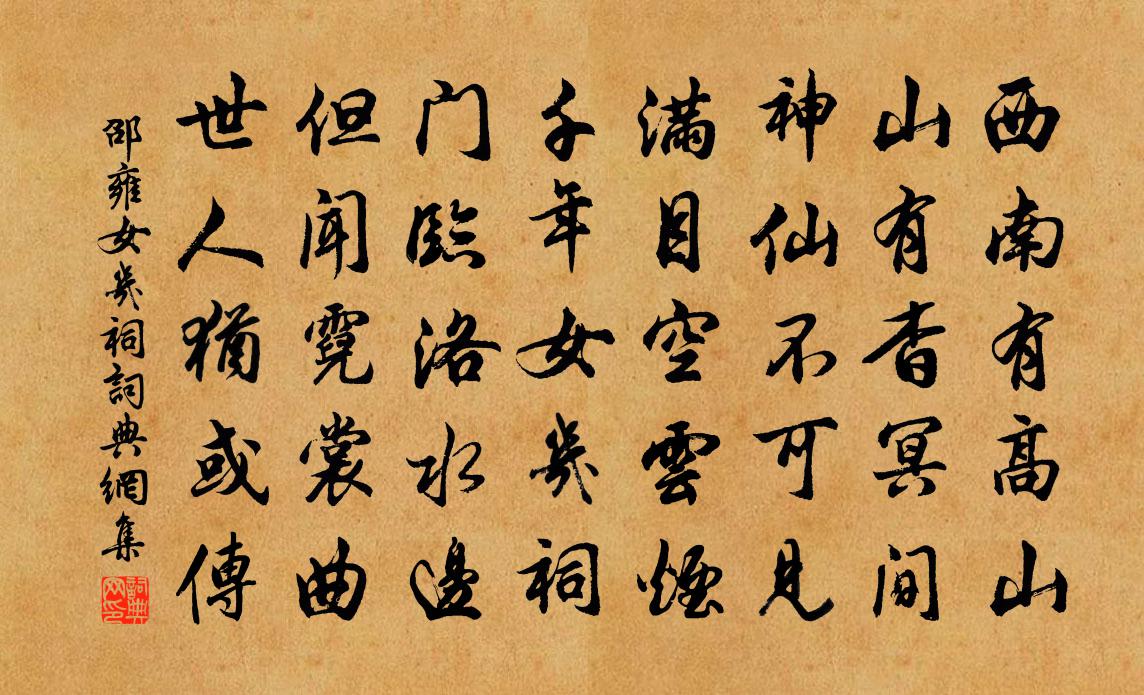 西南有高山
山有杳冥间
神仙不可見
滿目空雲煙
千年女幾祠
门臨洛水邊
但闻霓裳曲
世人猶或傳
邵雍女幾祠詞典網集
詞典网印